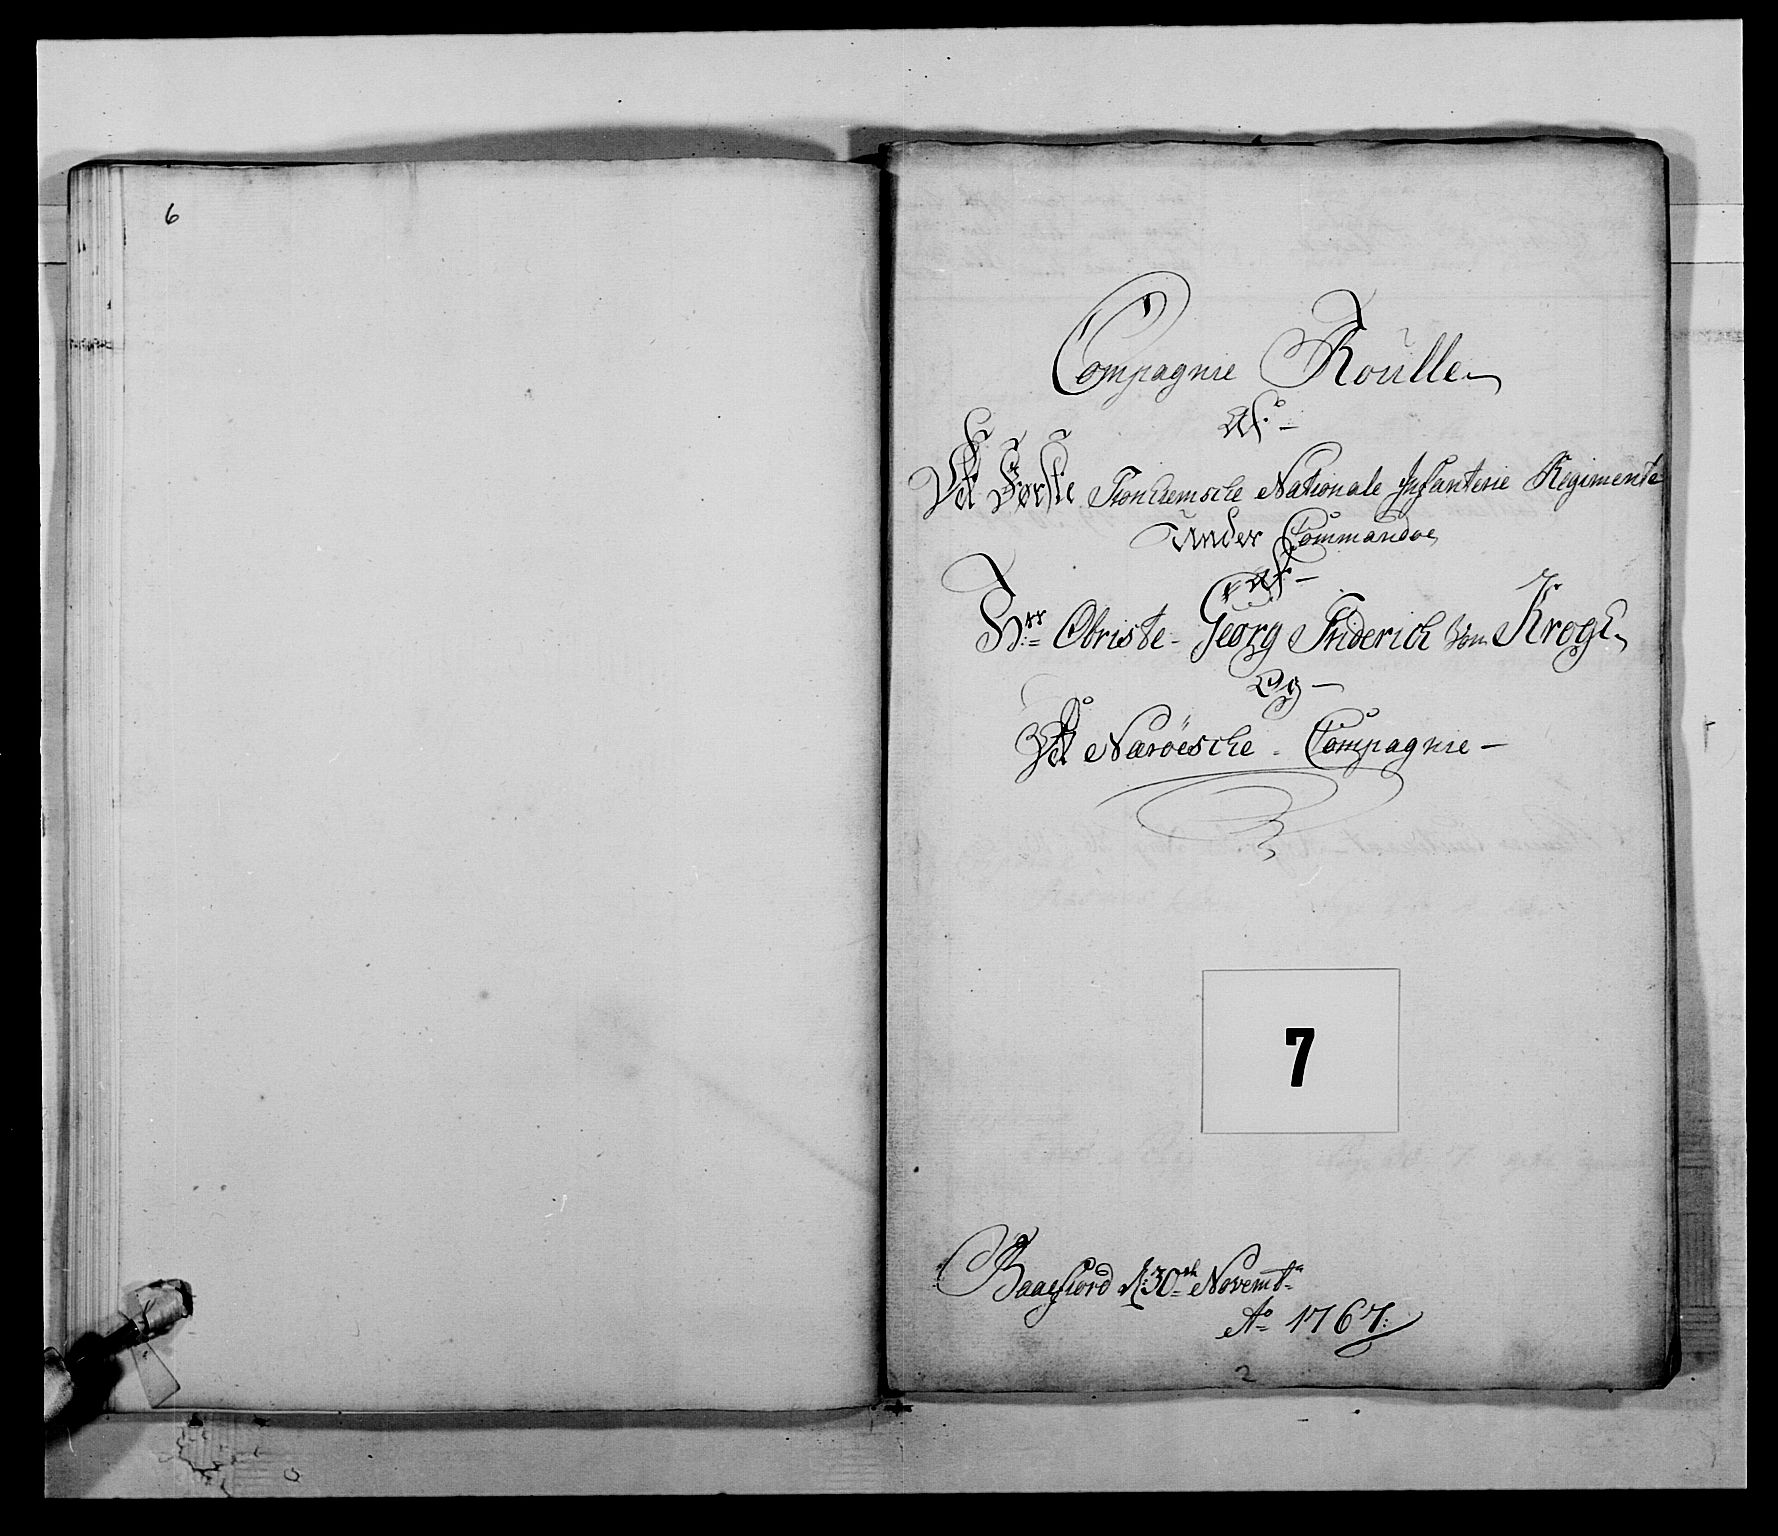 6
Compagnie Roülle
af
Det Første Tronhiemsche Nationale Infanterie Regimente
Under Commandoe
af
Hrr Obriste Georg Friderich von Krogh
Og
Det Næröesche Compagnie
7
d: 30th Novembr
Ao 1767
2